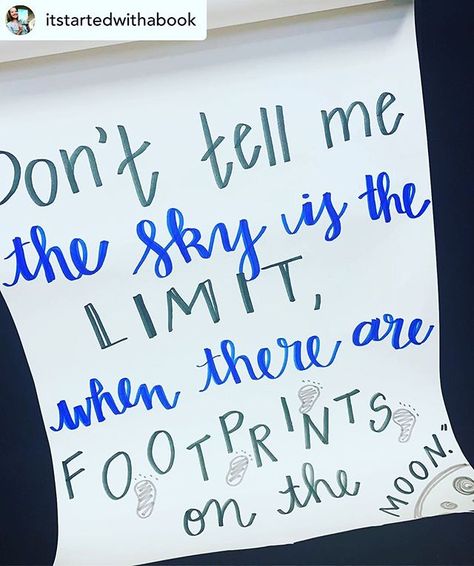 itstartedwithabook
Don't tell me
the sky is the
LIMIT,
when there are
FOOTPRINTS
on the
MOON."